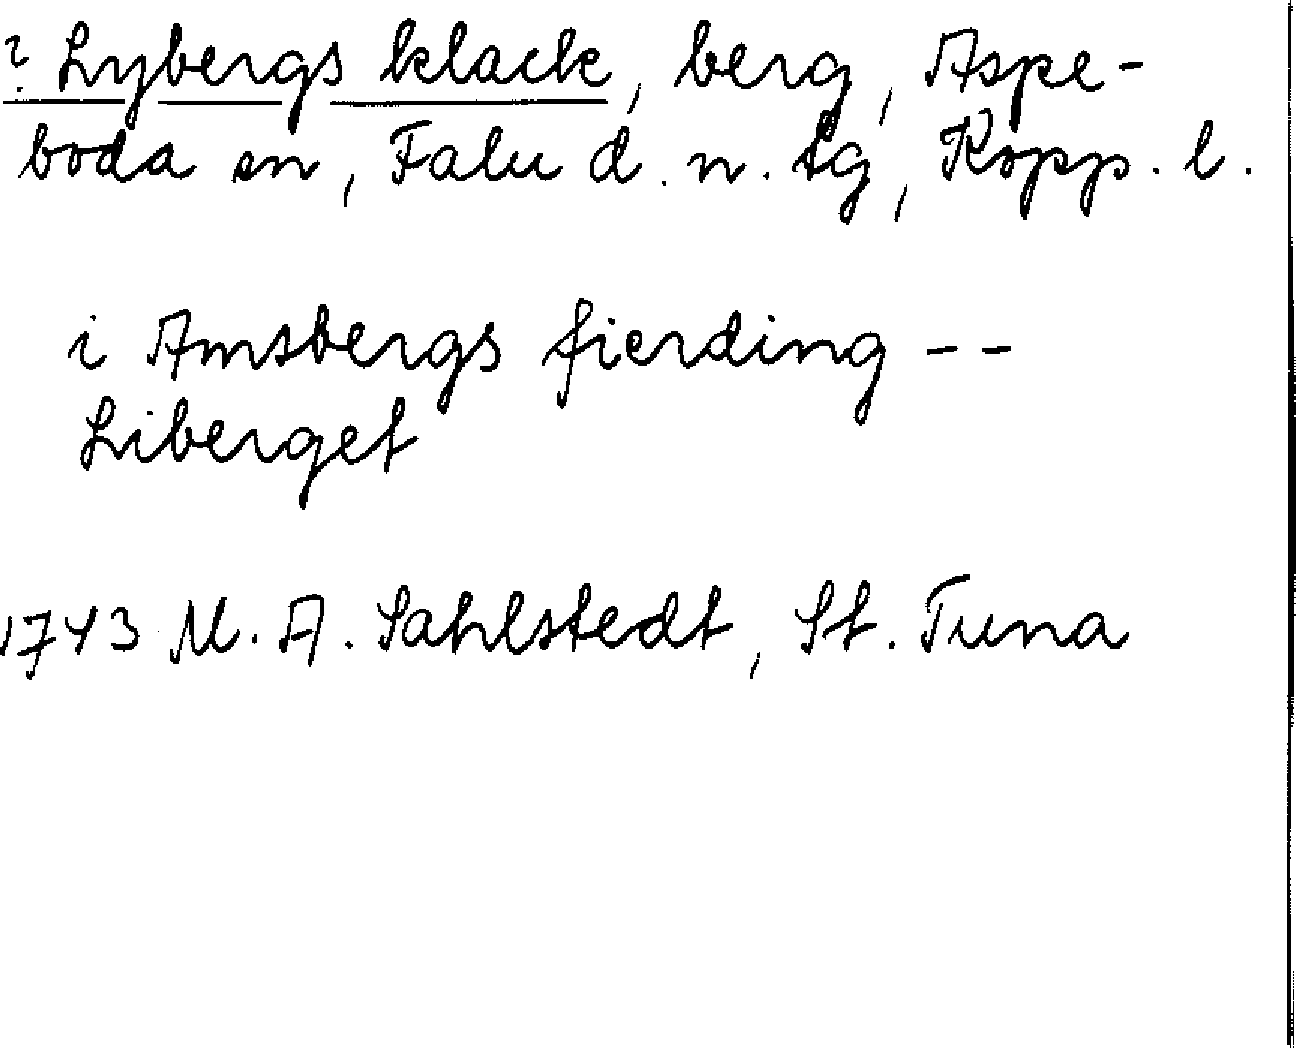 ? Lybergs klack, berg, Aspe-
boda sn, Falu d. n. tg, Kopp. l.
i Amsbergs fierding --
Liberget
1743 M. A. Sahlstedt, St. Tuna